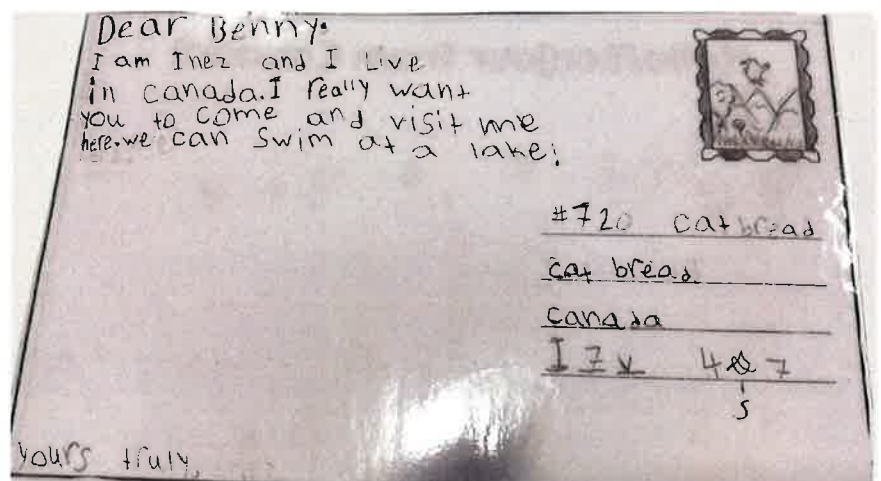 Dear Benny.
I am Inez and I Live
in canada.I really want
you to come and visit me
here.we can swim at a lake!
#720 cat bread
cat bread
canada
I7X 4 7
s
yours truly,